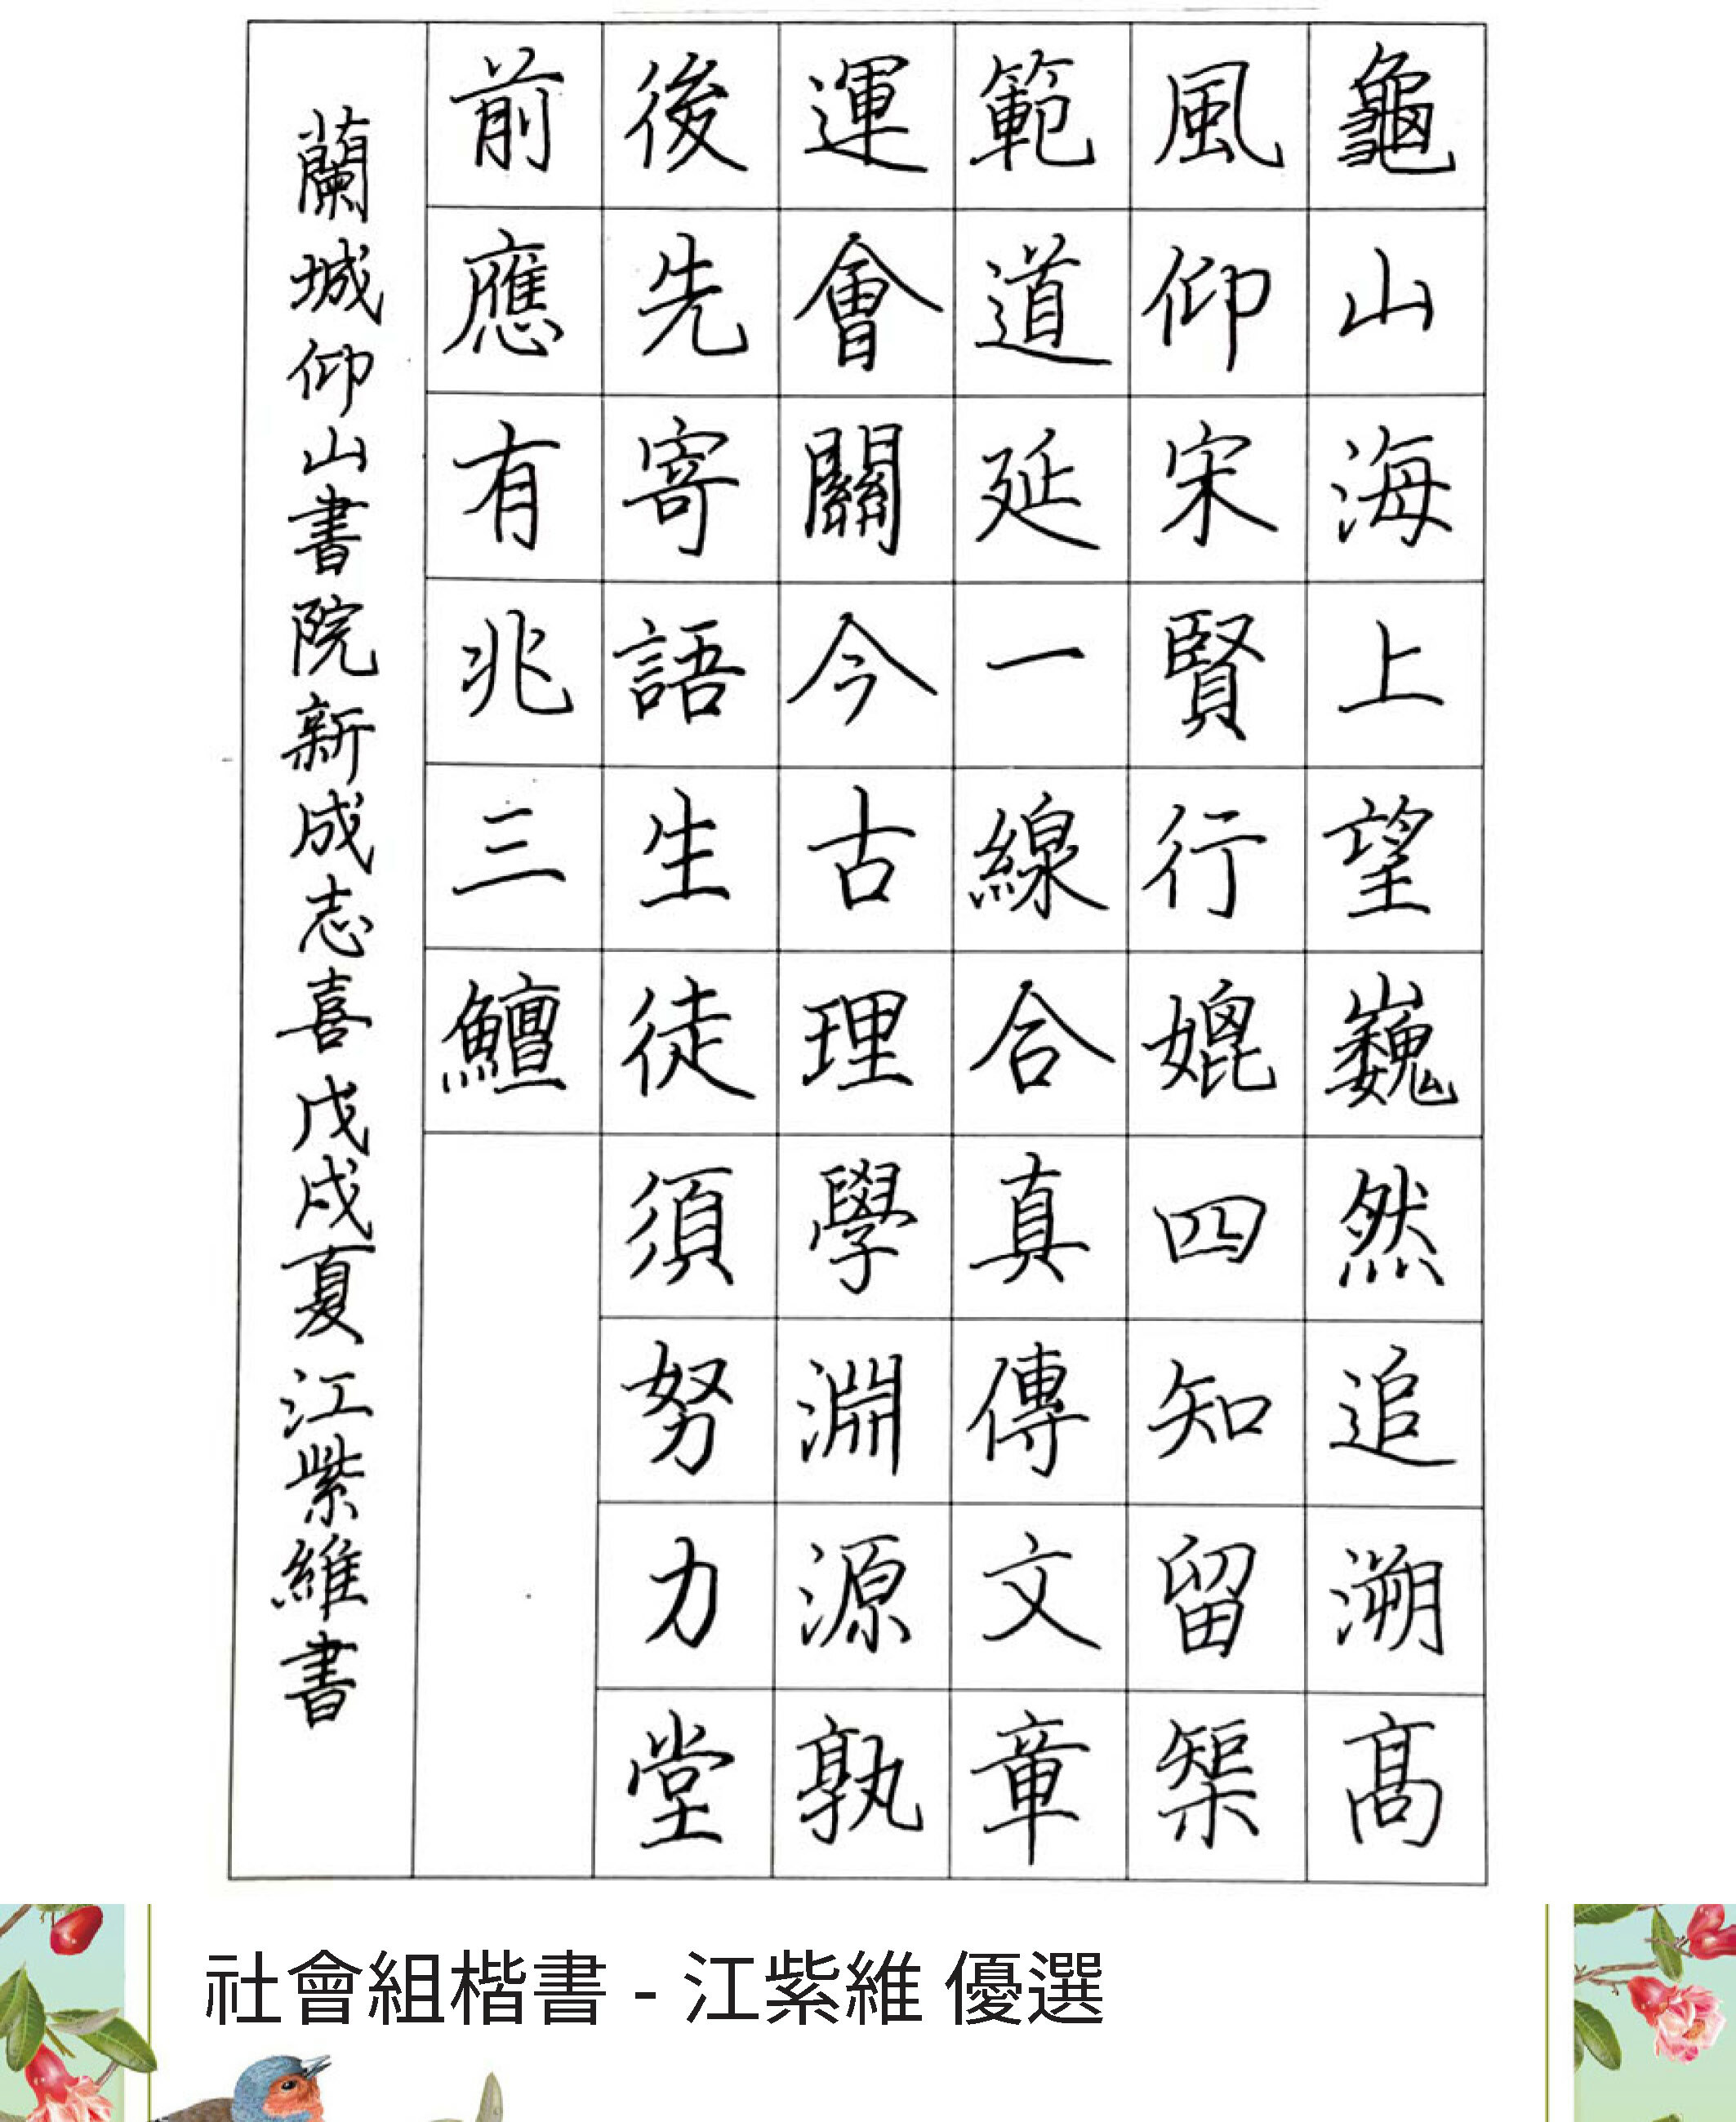 龜山海上望巍然追溯高
風仰宋賢行媲四知留榘
範道延一線合真傳文章
運會關今古理學淵源孰
後先寄語生徒須努力堂
前應有兆三鱣
蘭城仰山書院新成志喜 戊戌夏 江紫維書
社會組楷書 - 江紫維 優選